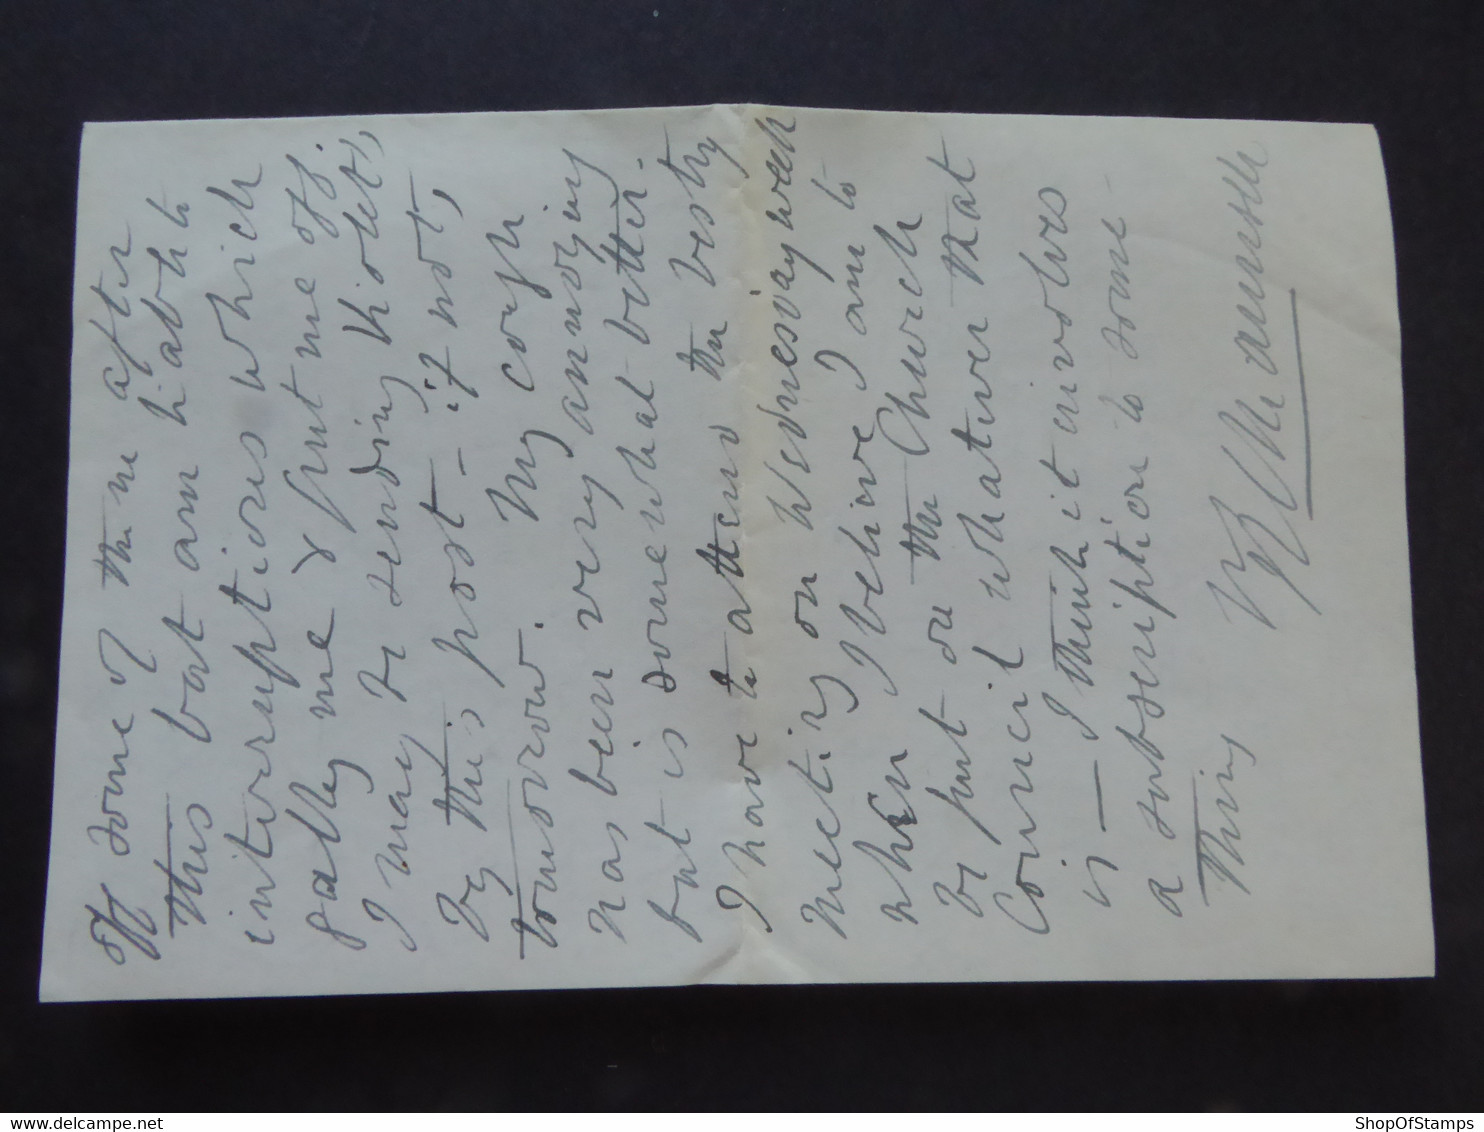 off some of them after
this but am liable to
interruptions which
sadly me & put me off.
I may be sending Violets,
by this post - if not,
tomorrow. My cough
has been very annoying
but is somewhat better.
I have to attend the Vestry
meeting on Wednesday week
when I believe I am to
be put on the Church
Council whatever that
is — I think it involves
a subscription to some -
thing
delcampe.net
ShopOfStamps